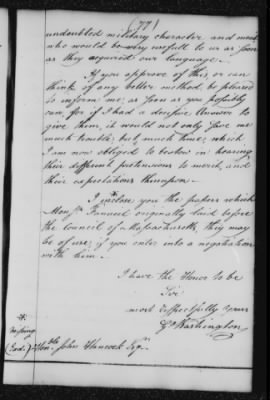 (77)
undoubted military character and merit
who would be very usefull to us as soon
as they acquired our language.
If you approve of this, or can
think of any better method, be pleased
to inform me, as soon as you possibly
can, for if I had a decisive Answer to
give them, it would not only save me
much trouble, but much time, which
I am now obliged to bestow in hearing
their different pretensions to merit, and
their expectations thereupon.
I inclose you the papers which
Monsr. Fanneuil originally laid before
the Council of Massachusetts, they may
be of use, if you enter into a negotiation
with him.
I have the Honor to be
Sir
most respectfully yours
Go Washington
*
missing
(Ford.)
Honble. John Hancock Esqr.